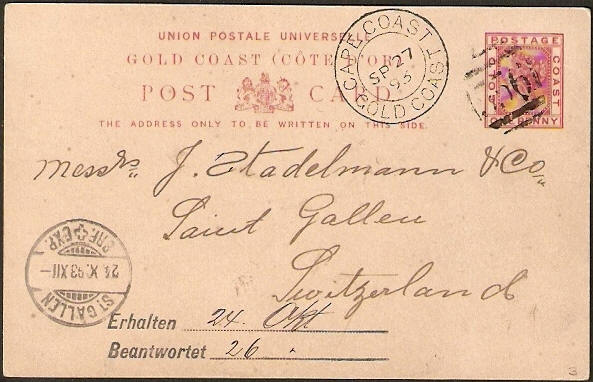 UNION POSTALE UNIVERSELLE
GOLD COAST (CÔTE D'OR)
POST CARD
THE ADDRESS ONLY TO BE WRITTEN ON THIS SIDE.
CAPE COAST
SP 27
93
GOLD COAST
POSTAGE
GOLD COAST
ONE PENNY
Messrs J. Stadelmann & Co
Saint Gallen
Switzerland
BRF. EXP.
24. X. 93 XII
ST. GALLEN
Erhalten 24. Okt
Beantwortet 26 "
3